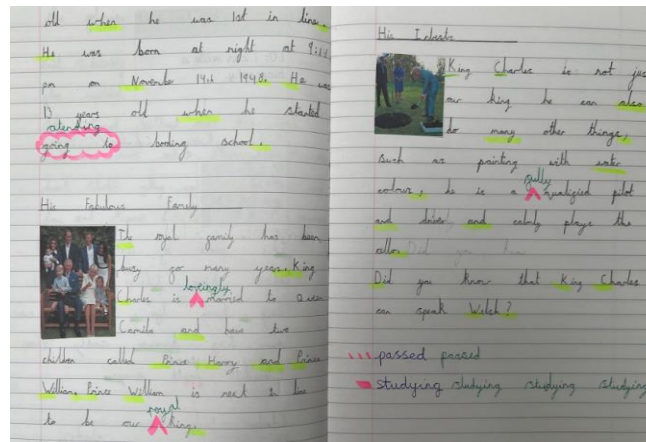 old when he was 1st in line.
He was born at night at 9:
pm on November 14th 1948. He was
13 years old when he started
atending
going to boding school.
His Fabulous Family
The royal family has been
busy for many years. King
lovingly
Charles is married to Queen
Camila and have two
children called Prince Harry and Prince
William. Prince William is next in line
royal
to be our king.
His Intrests
King Charles is not jus
our king he can also
do many other things,
such as painting with water
fully
colours, he is a qualified pilot
and driver and calmly plays the
Did you know
Did you know that King Charles
can speak Welsh?
passed passed
studying studying studying studying